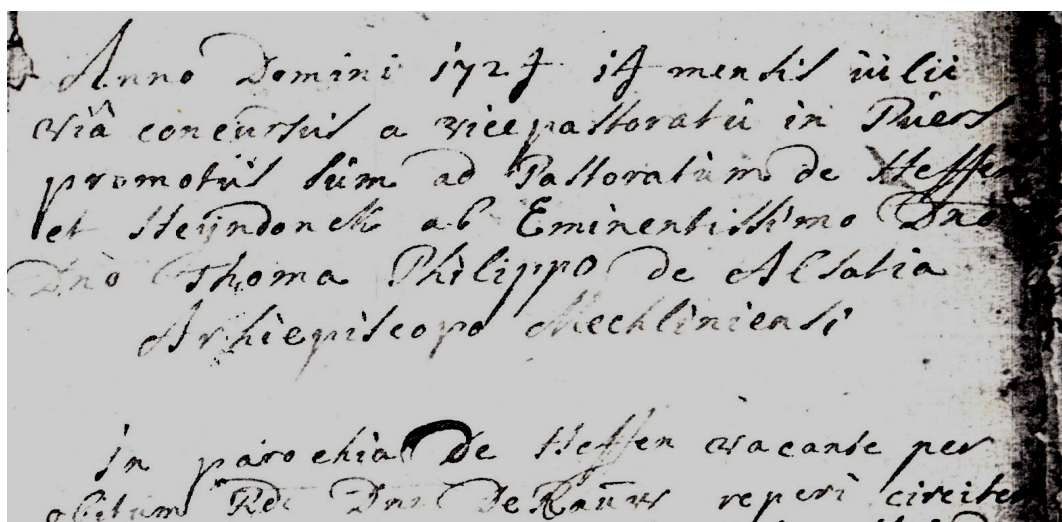 Anno Domini 1724 14 mensis iülii
viâ concursus a vicepastoratü in Püers
promotüs süm ad Pastoratum de Heffen
et Heyndonck ab Eminentissimo Dno
Dno Thoma Philippo de Alsatia
Archiepiscopo Mechliniensi
in parochia de Heffen vacante per
obitum Rdi Dni De Raüw reperi circiter